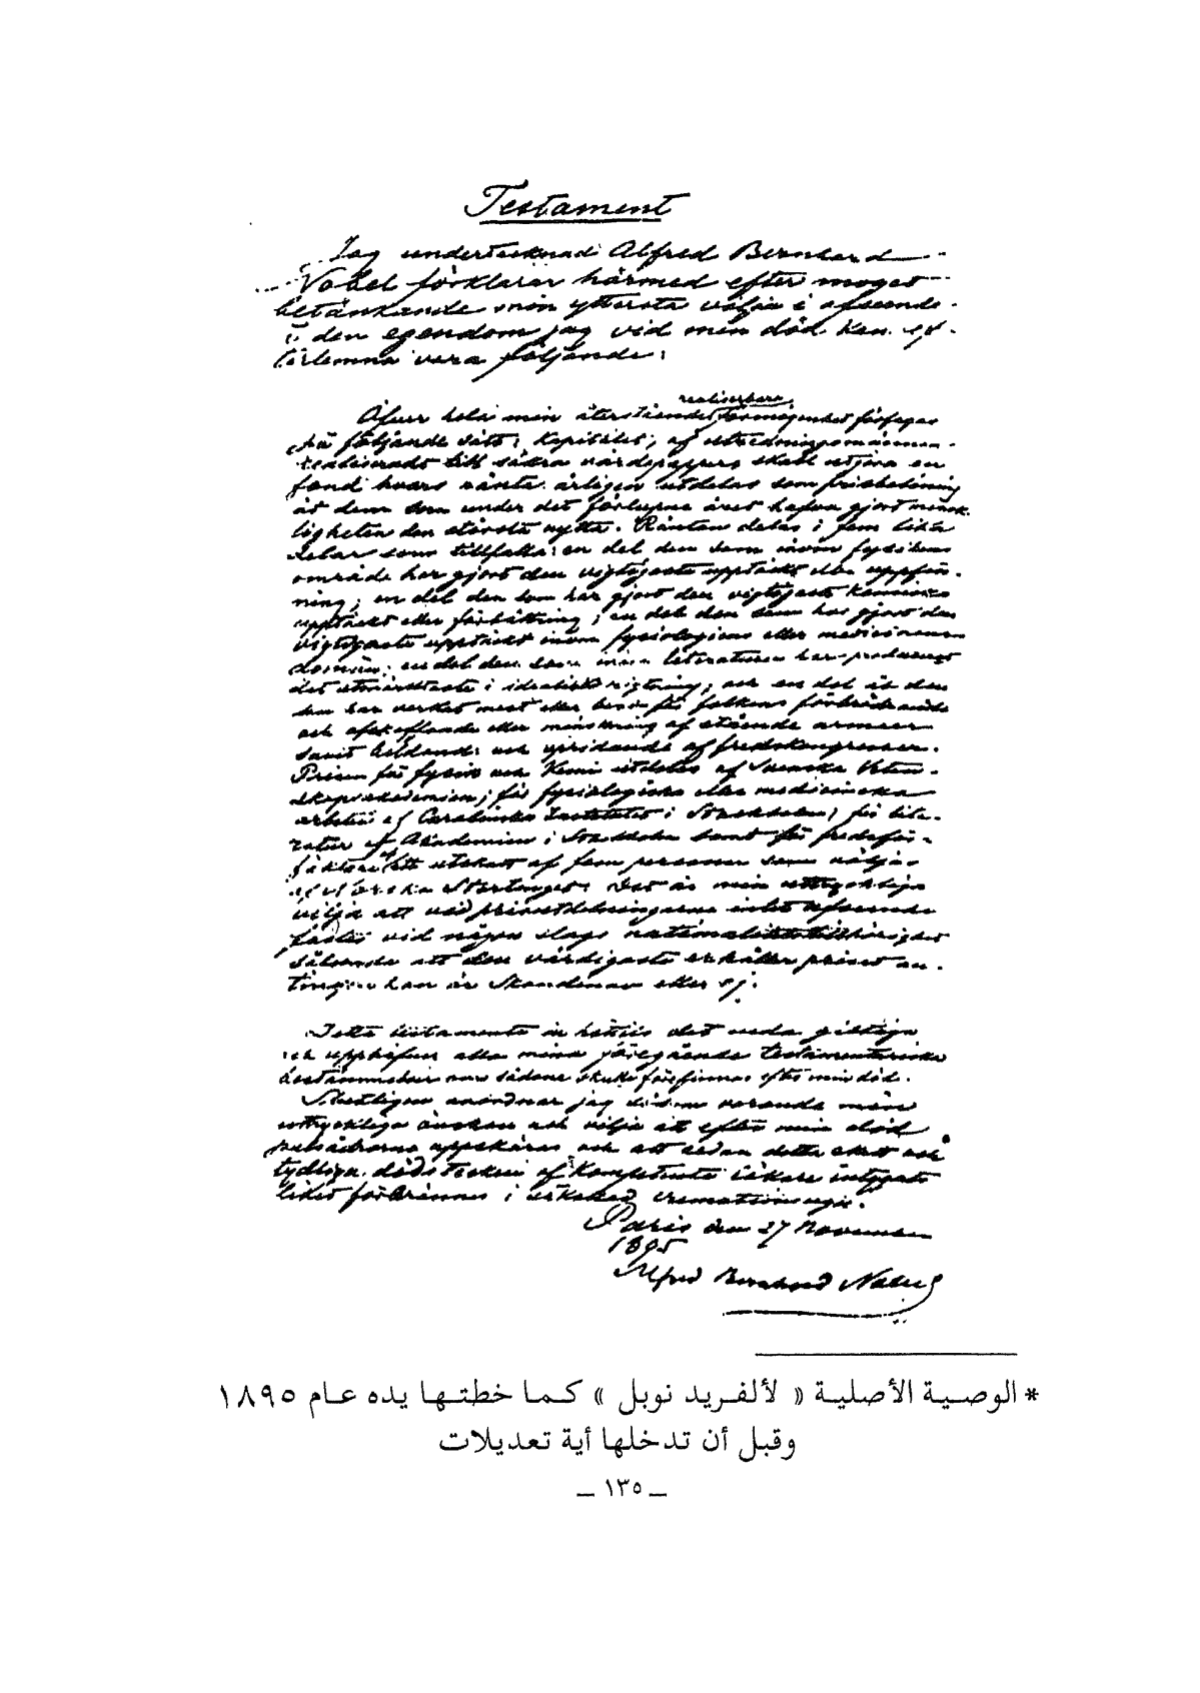 Testament
Jag undertecknad Alfred Bernhard
Nobel förklarar härmed efter moget
betänkande min yttersta vilja i afseende
å den egendom jag vid min död kan ef-
terlemna vara följande:
realiserbara
Öfver hela min återstående förmögenhet förfogas
på följande sätt: kapitalet, af utredningsmännen
realiserade till säkra värdepapper, skall utgöra en
fond hvars ränta årligen utdelas som prisbelöning
åt dem som under det förlupne året hafva gjort mensk-
ligheten den största nytta. Räntan delas i fem lika
delar som tillfalla: en del den som inom fysikens
område har gjort den vigtigaste upptäckt eller uppfin-
ning; en del den som har gjort den vigtigaste kemiska
upptäckt eller förbättring; en del den som har gjort den
vigtigaste upptäckt inom fysiologiens eller medicinens
domän; en del den som inom literaturen har producerat
det utmärktaste i idealisk rigtning; och en del åt den
som har verkat mest eller best för folkens förbrödrande
och afskaffande eller minskning af stående armeer
samt bildande och spridande af fredskongresser.
Prisen för fysik och kemi utdelas af Svenska Veten-
skapsakademien; för fysiologiska eller medicinska
arbeten af Carolinska Institutet i Stockholm; för lite-
ratur af Akademien i Stockholm samt för fredsför-
fäktare af ett utskott af fem personer som väljas
af Norska Stortinget. Det är min uttryckliga
vilja att vid prisutdelningarne intet afseende
fästes vid någon slags nationalitetstillhörighet
sålunda att den värdigaste erhåller priset an-
tingen han är Skandinav eller ej.
Detta testamente är hittills det enda giltiga
och upphäfver alla mina föregående testamentariska
bestämmelser om sådane skulle förefinnas efter min död.
Slutligen anordnar jag såsom varande min
uttryckliga önskan och vilja att efter min död
pulsådrorna uppskäras och att sedan detta skett och
tydliga dödstecken af kompetenta läkare intygats
liket förbrännes i så kallad cremationsugn.
Paris den 27 November
1895
Alfred Bernhard Nobel
* الوصية الأصلية « لألفريد نوبل » كما خطتها يده عام ١٨٩٥
وقبل أن تدخلها أية تعديلات
ــ ١٣٥ ــ